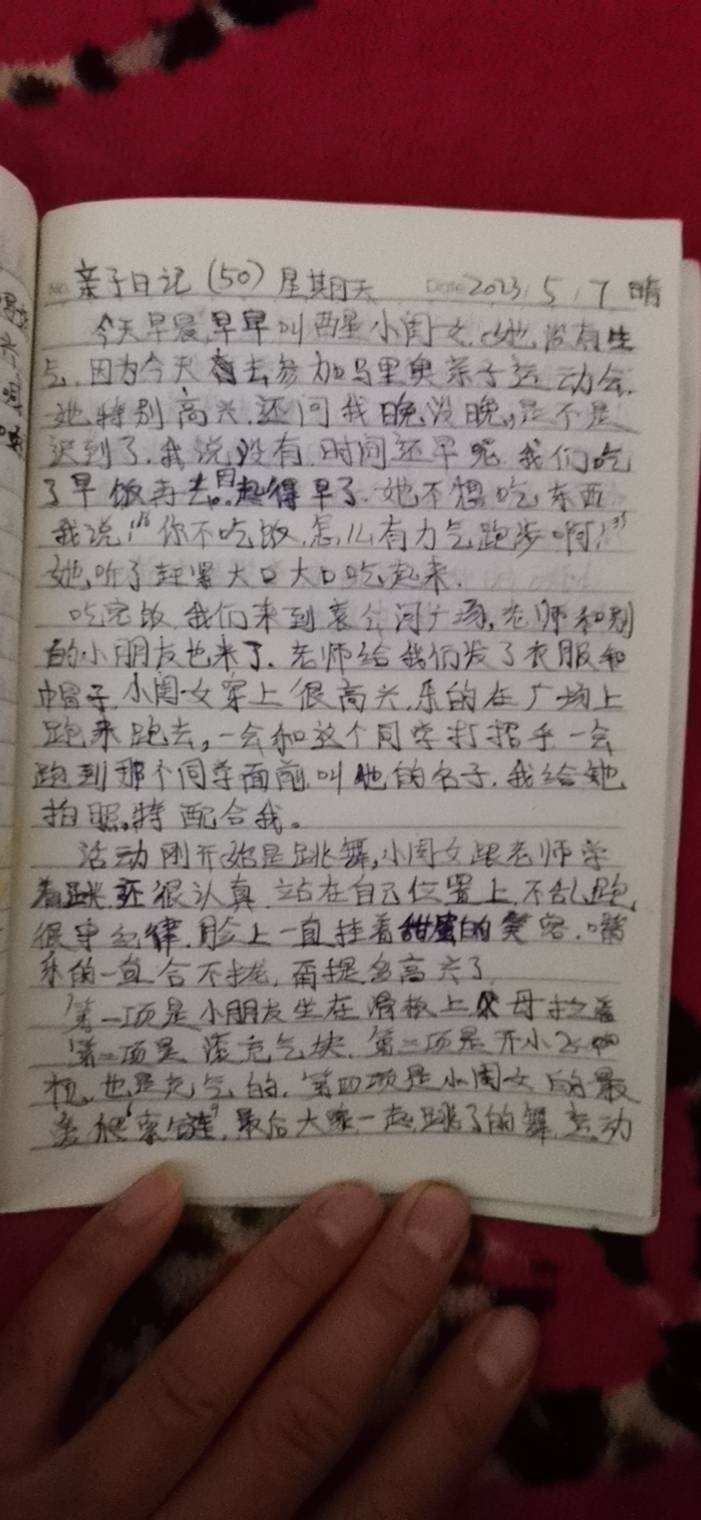 亲子日记(50)星期天 Date 2023 5 7 晴
今天早晨,早早叫醒小闺女.她没有生
气,因为今天去参加马里奥亲子运动会.
她特别高兴.还问我晚没晚,是不是
迟到了.我说没有,时间还早呢.我们吃
了早饭再去.起得早了.她不想吃东西
我说:"你不吃饭,怎么有力气跑步啊!"
她听了赶紧大口大口吃起来.
吃完饭,我们来到袁公河广场,老师和别
的小朋友也来了.老师给我们发了衣服和
帽子.小闺女穿上很高兴.乐的在广场上
跑来跑去,一会和这个同学打招乎一会
跑到那个同学面前叫他的名子.我给她
拍照,特配合我。
活动刚开始是跳舞,小闺女跟老师学
着跳还很认真.站在自己位置上,不乱跑,
很守纪律.脸上一直挂着甜蜜的笑容.嘴
乐的一直合不拢,甭提多高兴了.
第一项是小朋友坐在滑板上父母拉着
第二项是滚充气块.第三项是开小飞
机.也是充气的.第四项是小闺女的最
爱爬"索链".最后大家一起跳了的舞.运动